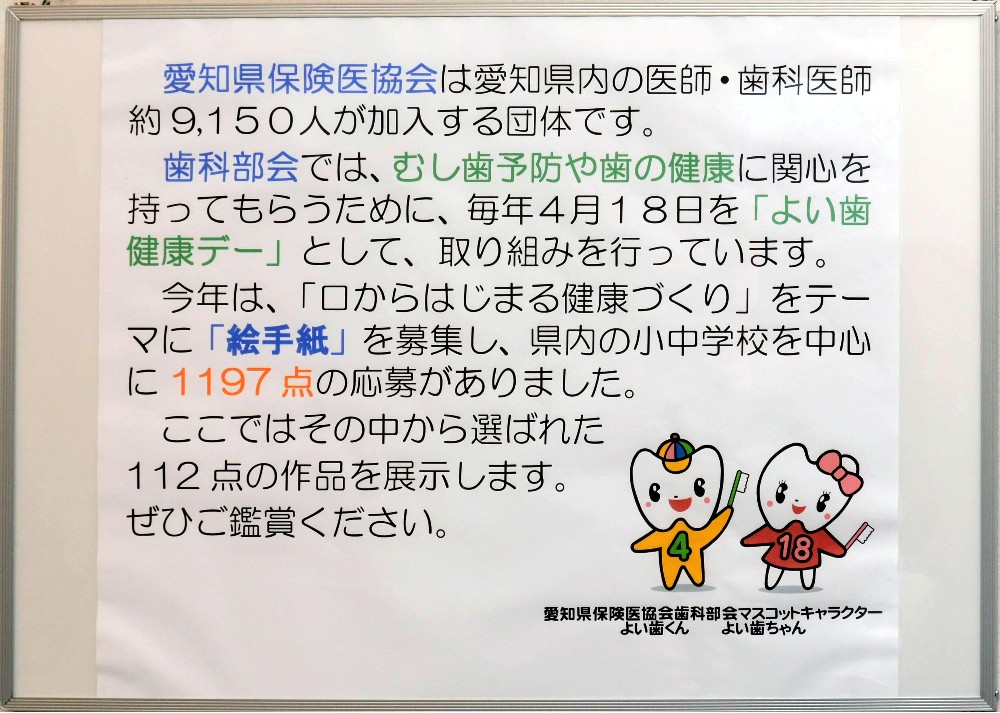 愛知県保険医協会は愛知県内の医師・歯科医師
約9,150人が加入する団体です。
歯科部会では、むし歯予防や歯の健康に関心を
持ってもらうために、毎年4月18日を「よい歯
健康デー」として、取り組みを行っています。
今年は、「口からはじまる健康づくり」をテー
マに「絵手紙」を募集し、県内の小中学校を中心
に1197点の応募がありました。
ここではその中から選ばれた
112点の作品を展示します。
ぜひご鑑賞ください。
4 18
愛知県保険医協会歯科部会マスコットキャラクター
よい歯くん よい歯ちゃん